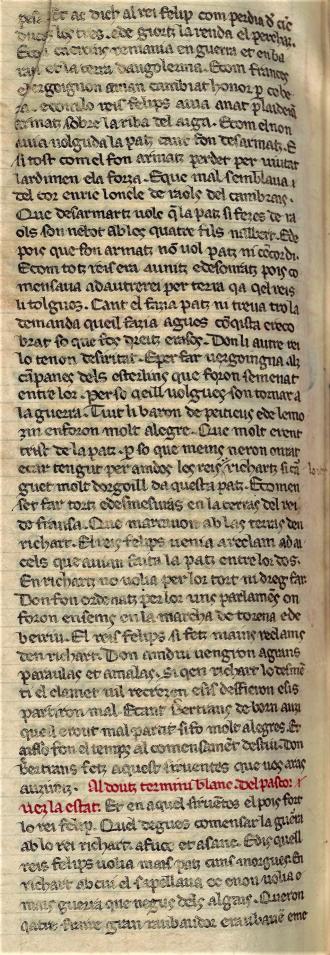 et ac dich al rei felip com perdia d cīc
ducs los tres. ede giortz la renda el percharz.
Ecom caercins remania en guerra et en ba
ralz et la terra dangolesma. Ecom frances
e bergoignon auian cambiat honor p cobe
za. ecom lo reis felips auia anat plaideiar
armatz sobre la riba del aiga. Ecom el non
auia volguda la patz cant fon desarmatz. E
si tost com el fon armatz perdet per viutat
lardimen ela forza. Eque mal semblaua i
del cor enric loncle de raols del cambrais.
Que desarmatz volc q̄ la patz si feses de ra
ols son nebot ab los quatre fils nalbert. Ede
pois que fon armatz nō vol patz ni cōcordi.
Ecom totz reis era aunitz edesonratz pois co
mensaua ad autre rei per terra qa qel reis
li tolgues. Cant el faria patz ni treua tro la
demanda queil faria agues cōqista ereco
brat so que fos dreitz erasos. Don li autre rei
lo tenon desiritat. Eper far vergoingna als
cāpanes dels esterlins que foron semenat
entre lor. Per so qeill volgues son tornar a
la guerra. Tuit li baron de peitieus ede lemo
zin enforon molt alegre. Que molt eront
trist de la patz. p so que meins neron onrat
ecar tengut per amdos les reis richartz si cr
guet molt dorgoill da questa patz. Ecomen
set far tortz edesmesuras en la terras del rei
do fransa. Que marcauon ab las terras den
richart. El reis felips venia a reclam ad a
cels que auian faita la patz entre lor dos.
En richartz no volia per lor tort ni dreg far.
Don fon ordenatz per lor uns parlamēs on
foron ensems en la marcha de torena ede
beiriu. El reis felips si fetz mains reclams
den richart. Don amdui vengron a grans
paraulas et a malas. Si qen richart lo desmē
ti el clamet vil recrezen esis desfieron esis
partiron mal. Ecant bertrans de born auzi
que il eront mal partit si fo molt alegres. Et
aisso fon el temps al comensamēt destiu. Don
bertrans fetz aquest siruentes que vos aras
auziretz. Al doutz termini blanc. del pascor
vei la estat. Et en aquel siruētes el pois fort
lo rei felip. Quel degues comensar la guerra
ab lo rei richart. a fuoc et a sanc. Edis quel
reis felips volia mais patz cuns morgues. En
richart ab cui el sapellaua oc enon volia
mais guerra que negus dels algais. Queron
quatre fraire gran raubador eraubauē eme